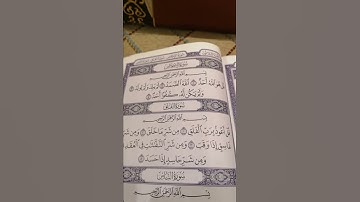 سُورَةُ الإِخْلَاصِ
بِسْمِ اللَّهِ الرَّحْمَٰنِ الرَّحِيمِ
قُلْ هُوَ اللَّهُ أَحَدٌ ۝ اللَّهُ الصَّمَدُ ۝ لَمْ يَلِدْ وَلَمْ يُولَدْ ۝
وَلَمْ يَكُن لَّهُ كُفُوًا أَحَدٌ ۝
سُورَةُ الفَلَقِ
بِسْمِ اللَّهِ الرَّحْمَٰنِ الرَّحِيمِ
قُلْ أَعُوذُ بِرَبِّ الْفَلَقِ ۝ مِن شَرِّ مَا خَلَقَ ۝ وَمِن شَرِّ
غَاسِقٍ إِذَا وَقَبَ ۝ وَمِن شَرِّ النَّفَّاثَاتِ فِي الْعُقَدِ
وَمِن شَرِّ حَاسِدٍ إِذَا حَسَدَ ۝
سُورَةُ النَّاسِ
بِسْمِ اللَّهِ الرَّحْمَٰنِ الرَّحِيمِ